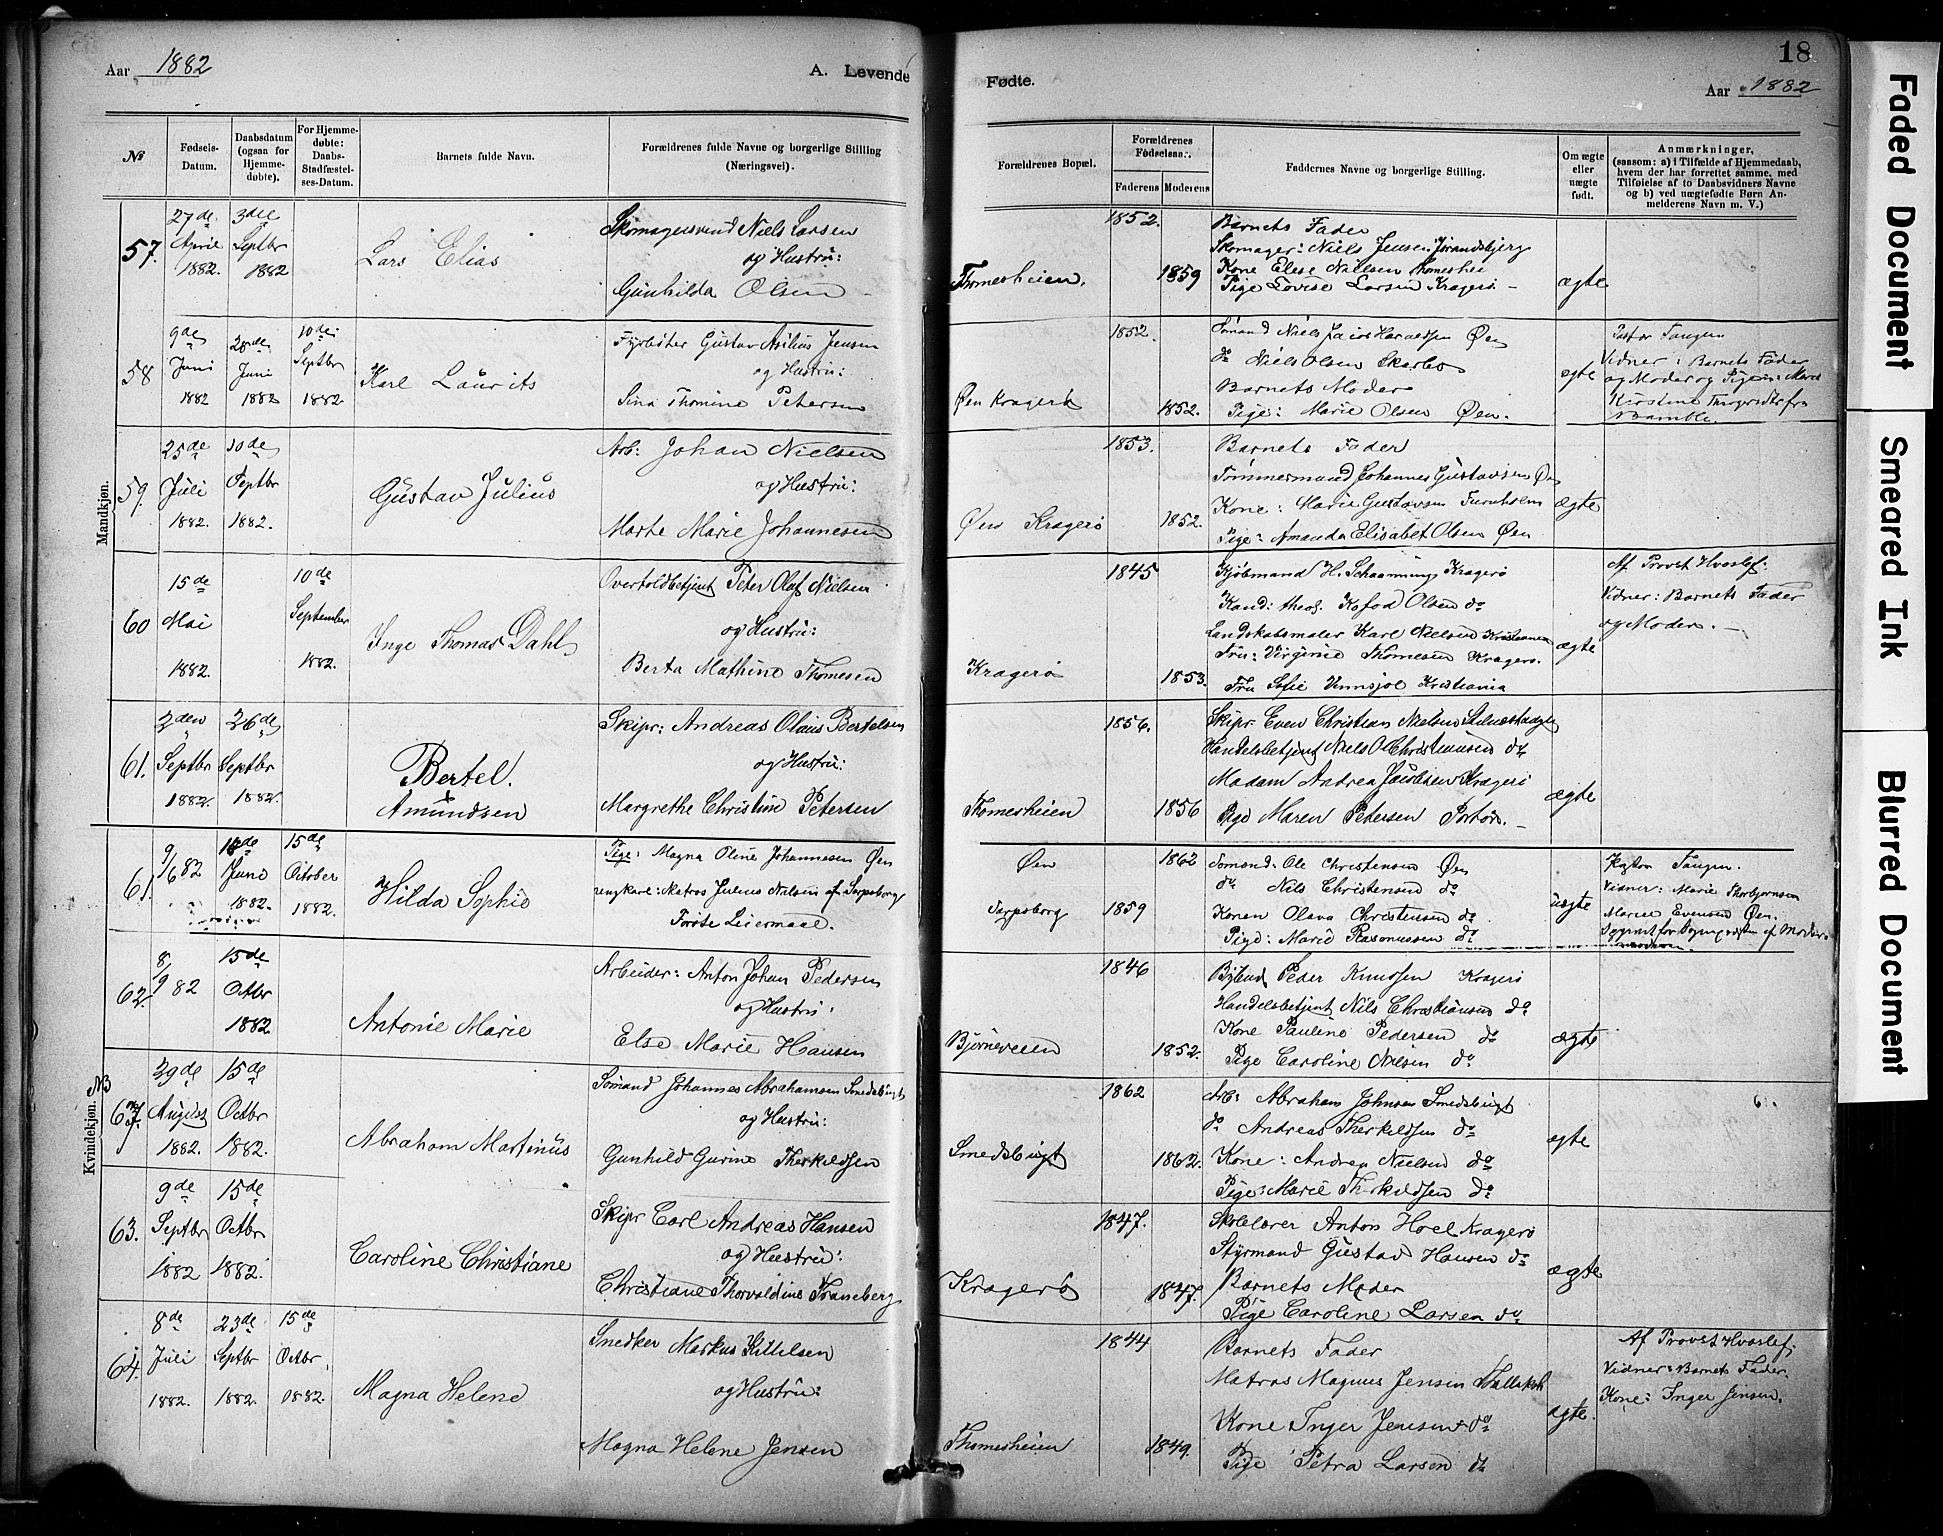 Aar 1882
A. Levende
Fødte.
18
Aar 1882
№
Fødsels-Datum.
Daabsdatum (ogsaa for Hjemme-døbte).
For Hjemme-døbte: Daabs-Stadfæstel-ses-Datum.
Barnets fulde Navn.
Forældrenes fulde Navne og borgerlige Stilling (Næringsvei).
Forældrenes Bopæl.
Forældrenes Fødselsaar.
Faderens
Moderens
Faddernes Navne og borgerlige Stilling.
Om ægte eller uægte født.
Anmærkninger,
(saasom: a) i Tilfælde af Hjemmedaab,
hvem der har forrettet samme, med
Tilføielse af to Daabsvidners Navne
og b) ved uægtefødte Børn An-
melderens Navn m. V.)
Mandkjøn.
57.
27de April 1882.
3die Septbr 1882
Lars Elias
Skomagersvend Niels Larsen
og Hustru:
Gunhilda Olsen
Thomesheien.
1852.
1859
Barnets Fader
Skomager: Niels Jensen Jørandsbjerg
Kone Elese Nielsen Thomeshei
Pige Lovise Larsen Kragerø
ægte
58
9de Juni 1882
28de Juni 1882
10de Septbr 1882.
Karl Laurits
Fyrbøter Gustav Asilius Jensen
og Hustru:
Sina Thomine Petersen
Øen Kragerø
1852.
1852.
Sömand Niels Jacob Haraldsen Øen
do Niels Olsen Skarbo
Barnets Moder
Pige: Marie Olsen Øen.
ægte
Pastor Tangen
Vidner: Barnets Fader
og Moder og Pigen: Marie
Kirstine Thygesdtr fra
Bamble.
59.
25de Juli 1882.
10de Septbr 1882.
Gustav Julius
Arb: Johan Nielsen
og Hustru:
Marte Marie Johannesen
Øen Kragerø
1853.
1852.
Barnets Fader
Tømmermand Johannes Gustavsen Øen
Kone: Marie Gustavsen Furuholm
Pige: Amanda Elisabet Olsen Øen
ægte
60
15de Mai 1882.
10de September 1882.
Inge Thomas Dahl
Overtoldbetjent Peter Olaf Nielsen
og Hustru:
Berta Mathine Thomesen
Kragerø
1845
1853.
Kjøbmand H. Schaanning Kragerø
Kand: theol. Kofod Olsen do
Landskabsmaler Karl Nielsen Kristiania
Fru: Virginie Thomesen Kragerø.
Fru Sofie Unnsjø Kristiania
ægte
Af Provst Hvoslef.
Vidner: Barnets Fader
og Moder.
61.
2den Septbr 1882.
26de Septbr 1882.
Bertel.
Amundsen
Skipr: Andreas Olaus Bertelsen
og Hustru:
Margrethe Christine Petersen
Thomesheien
1856.
1856
Skipr Even Christian Nielsen
Handelsbetjent Niels O Christiansen do
Madam Andrea Jacobsen Kragerø
Pige Maren Pedersen
ægte
Kvindekjøn.
61.
9/6 82
18de Juni 1882.
15de October 1882.
Hilda Sophie
Pige: Magna Oline Johannesen Øen
Ungkarl: Matros Julius Nielsen af Sarpsborg
Første Leiermaal.
Øen
Sarpsborg
1862
1859
Sømand: Ole Christensen Øen
do Nils Christensen do
Konen Olava Christensen do
Pige: Marie Rasmussen do
uægte
Pastor Tangen.
Vidner: Marie Thorbjørnsen
Marie Evensen Øen.
62.
8/9 82
15de Octbr 1882
Antonie Marie
Arbeider: Anton Johan Pedersen
og Hustru:
Else Marie Hansen
Bjørneveien
1846
1852.
Bybud Peder Knudsen Kragerø
Handelsbetjent Nils Christiansen do
Kone Pauline Pedersen do
Pige Caroline Nielsen do
ægte
NB
67.
29de August 1882.
15de Octbr 1882.
Abraham Martinus
Sømand Johannes Abrahamsen Smedsbugt
og Hustru:
Gunhild Gurine Therkildsen
Smedsbugt
1862
1862.
Arb: Abraham Johnsen Smedsbugt
do Andreas Therkildsen do
Kone: Andrea Nielsen do
Pige: Marie Therkildsen do
ægte
63.
9de Septbr 1882
15de Octbr 1882.
Caroline Christiane
Skipr Carl Andreas Hansen
og Hustru:
Christiane Thorvaldine Traneberg
Kragerø
1847.
1847.
Skolelærer Anton Hoel Kragerø
Styrmand Gustav Hansen do
Barnets Moder
Pige Caroline Larsen do
ægte
64.
8de Juli 1882.
23de Septbr 1882.
15de Octbr 1882.
Magna Helene
Snedker Markus Kittelsen
og Hustru:
Magna Helene Jensen
Thomesheien
1844
1849.
Barnets Fader
Matros Magnus Jensen
Kone Inger Jensen do
Pige Petra Larsen do
ægte.
Af Provst Hvoslef.
Vidner: Barnets Fader.
Kone: Inger Jensen.
Faded Document
Smeared Ink
Blurred Document